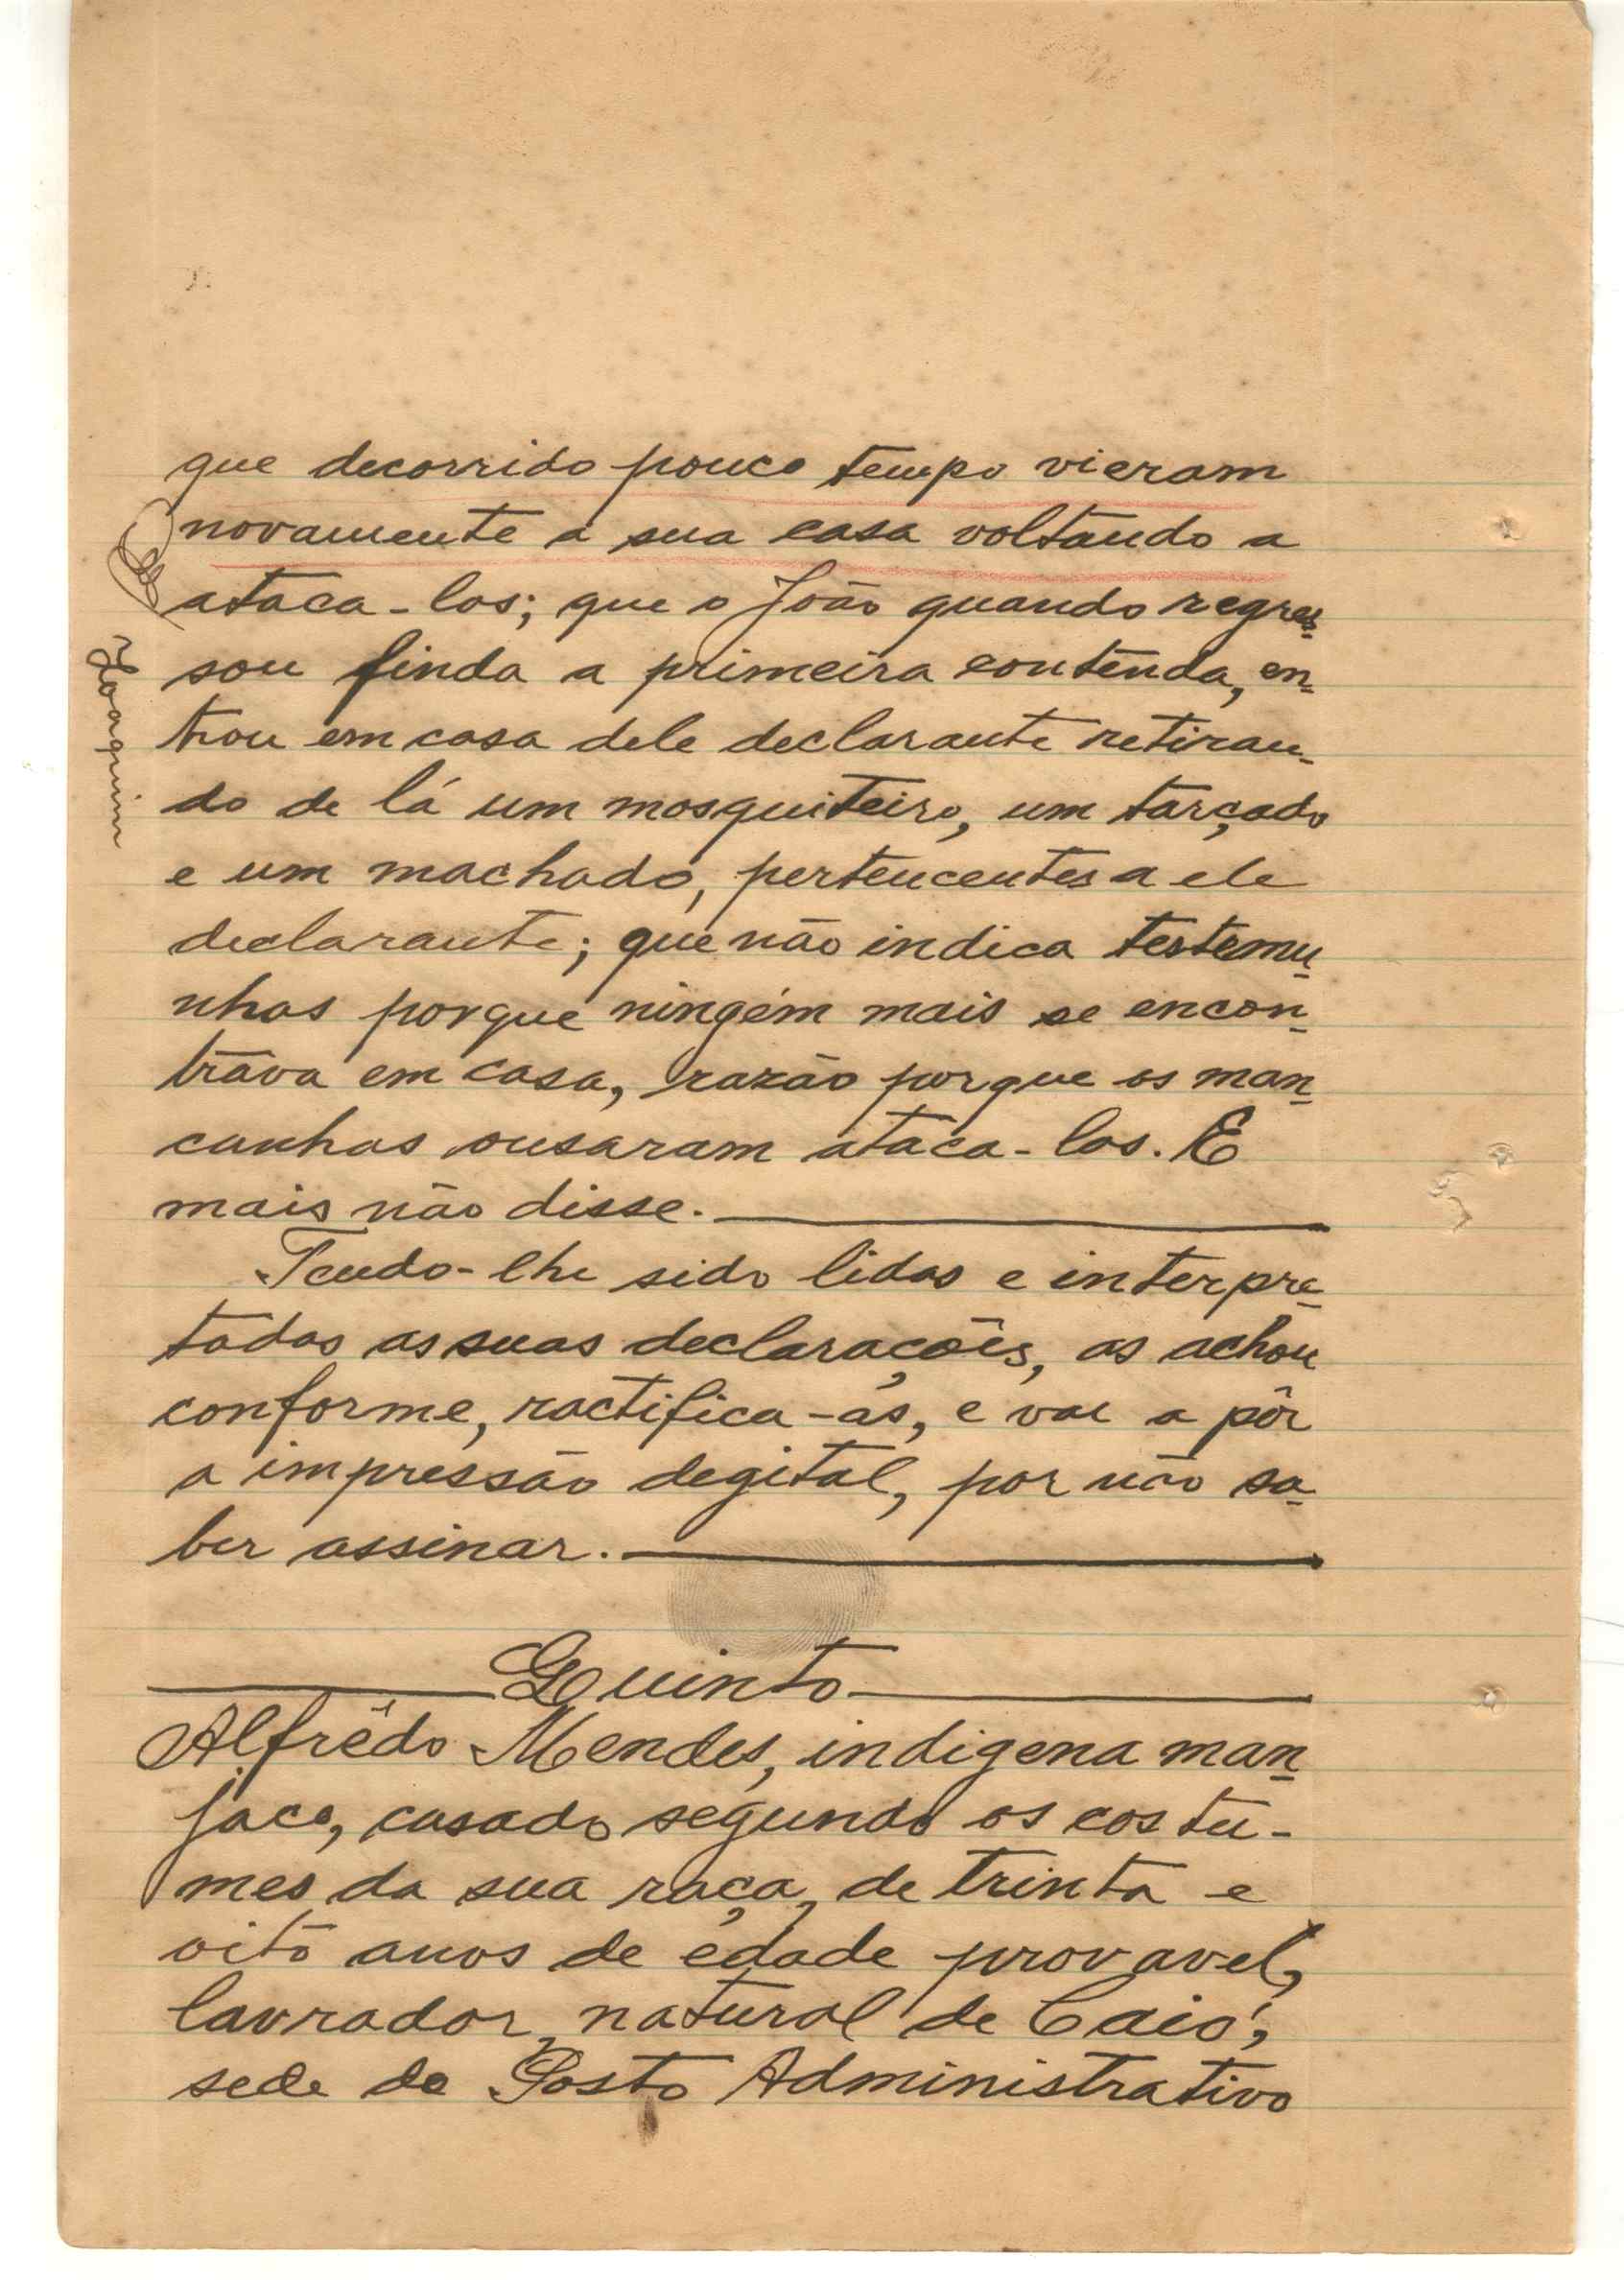 que decorrido pouco tempo vieram
novamente a sua casa voltando a
ataca-los; que o João quando regres-
sou finda a primeira contenda, en-
trou em casa dele declarante retiran-
do de lá um mosquiteiro, um tarçado
e um machado, pertencentes a ele
declarante; que não indica testemu-
nhas porque ningém mais se encon-
trava em casa, razão porque os man-
canhas ousaram ataca-los. E
mais não disse.
Tendo-lhe sido lidas e interpre-
tadas as suas declarações, as achou
conforme, ractifica-as, e vai a pôr
a impressão degital, por não sa-
ber assinar.
Quinto
Alfrêdo Mendes, indigena man-
jaco, casado segundo os costu-
mes da sua raça, de trinta e
oito anos de edade provavel,
lavrador, natural de Caió,
sede do Posto Administrativo
Joaquim